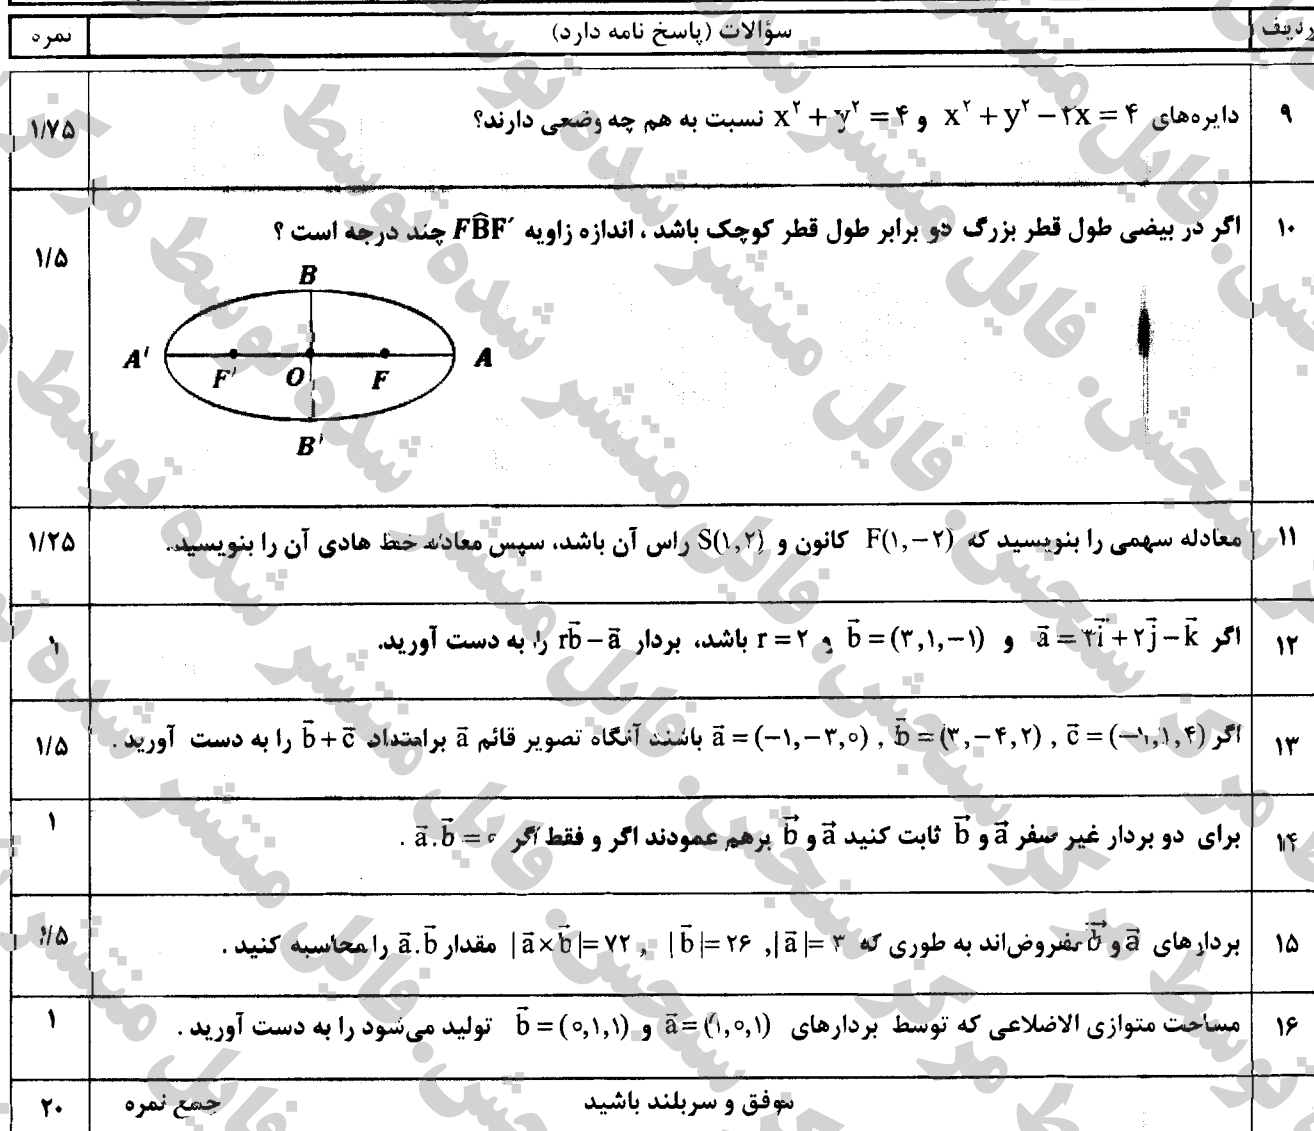 ردیف سؤالات (پاسخ نامه دارد) نمره
۹ دایره‌های x² + y² − ۲x = ۴ و x² + y² = ۴ نسبت به هم چه وضعی دارند؟ ۱/۷۵
۱۰ اگر در بیضی طول قطر بزرگ دو برابر طول قطر کوچک باشد ، اندازه زاویه FB̂F′ چند درجه است ؟ ۱/۵
B
A′ F′ O F A
B′
۱۱ معادله سهمی را بنویسید که F(۱,−۲) کانون و S(۱,۲) راس آن باشد، سپس معادله خط هادی آن را بنویسید. ۱/۲۵
۱۲ اگر a⃗ = ۳i⃗ + ۲j⃗ − k⃗ و b⃗ = (۳,۱,−۱) و r = ۲ باشد، بردار rb⃗ − a⃗ را به دست آورید. ۱
۱۳ اگر a⃗ = (−۱,−۳,۰) , b⃗ = (۳,−۴,۲) , c⃗ = (−۱,۱,۴) باشند آنگاه تصویر قائم a⃗ برامتداد b⃗ + c⃗ را به دست آورید . ۱/۵
۱۴ برای دو بردار غیر صفر a⃗ و b⃗ ثابت کنید a⃗ و b⃗ برهم عمودند اگر و فقط اگر a⃗ . b⃗ = ۰ . ۱
۱۵ بردارهای a⃗ و b⃗ مفروض‌اند به طوری که |a⃗| = ۳ , |b⃗| = ۲۶ , |a⃗ × b⃗| = ۷۲ مقدار a⃗ . b⃗ را محاسبه کنید . ۱/۵
۱۶ مساحت متوازی الاضلاعی که توسط بردارهای a⃗ = (۱,۰,۱) و b⃗ = (۰,۱,۱) تولید می‌شود را به دست آورید . ۱
موفق و سربلند باشید جمع نمره ۲۰